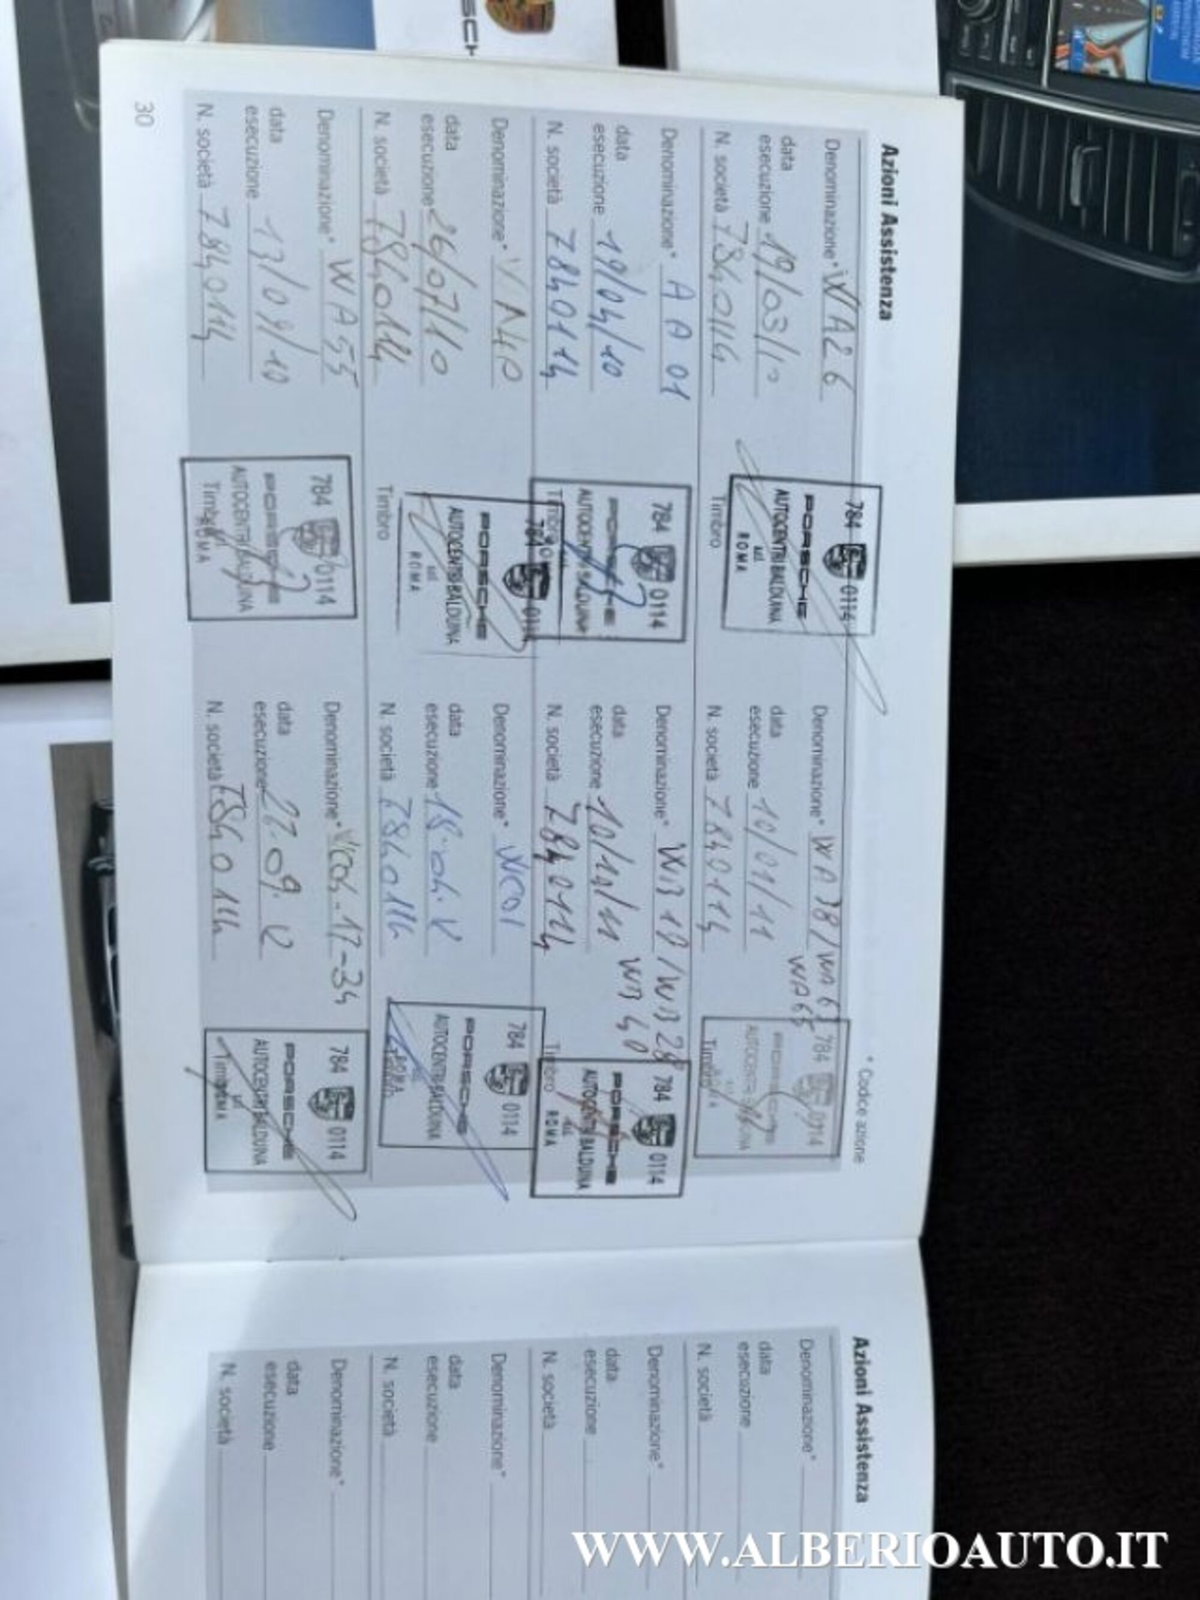 PORSCH
Azioni Assistenza
* Codice azione
Denominazione* WA26
data
esecuzione 19/03/10
N. società 7840114
784 0114
PORSCHE
AUTOCENTRI BALDUINA
srl
ROMA
Timbro
Denominazione* WA38/WA63
WA65
data
esecuzione 10/01/11
N. società 7840114
784 0114
PORSCHE
AUTOCENTRI BALDUINA
Timbro
Denominazione* AA01
data
esecuzione 19/04/10
N. società 7840114
784 0114
PORSCHE
AUTOCENTRI BALDUINA
Timbro
Denominazione* WB10/WB28
WB40
data
esecuzione
N. società 7840114
784 0114
PORSCHE
AUTOCENTRI BALDUINA
srl
ROMA
Timbro
Denominazione*
data
esecuzione 26/07/10
N. società 7840114
784 0114
PORSCHE
AUTOCENTRI BALDUINA
srl
ROMA
Timbro
Denominazione* WC01
data
esecuzione 18.04.12
N. società 7840114
784 0114
PORSCHE
AUTOCENTRI BALDUINA
ROMA
Denominazione* WA55
data
esecuzione 13/09/10
N. società 7840114
784 0114
PORSCHE
AUTOCENTRI BALDUINA
Timbro
ROMA
Denominazione* WC04-12-34
data
esecuzione 27.09.12
N. società 7840114
784 0114
PORSCHE
AUTOCENTRI BALDUINA
srl
Timbro
ROMA
30
Azioni Assistenza
Denominazione*
data
esecuzione
N. società
Denominazione*
data
esecuzione
N. società
Denominazione*
data
esecuzione
N. società
Denominazione*
data
esecuzione
N. società
WWW.ALBERIOAUTO.IT